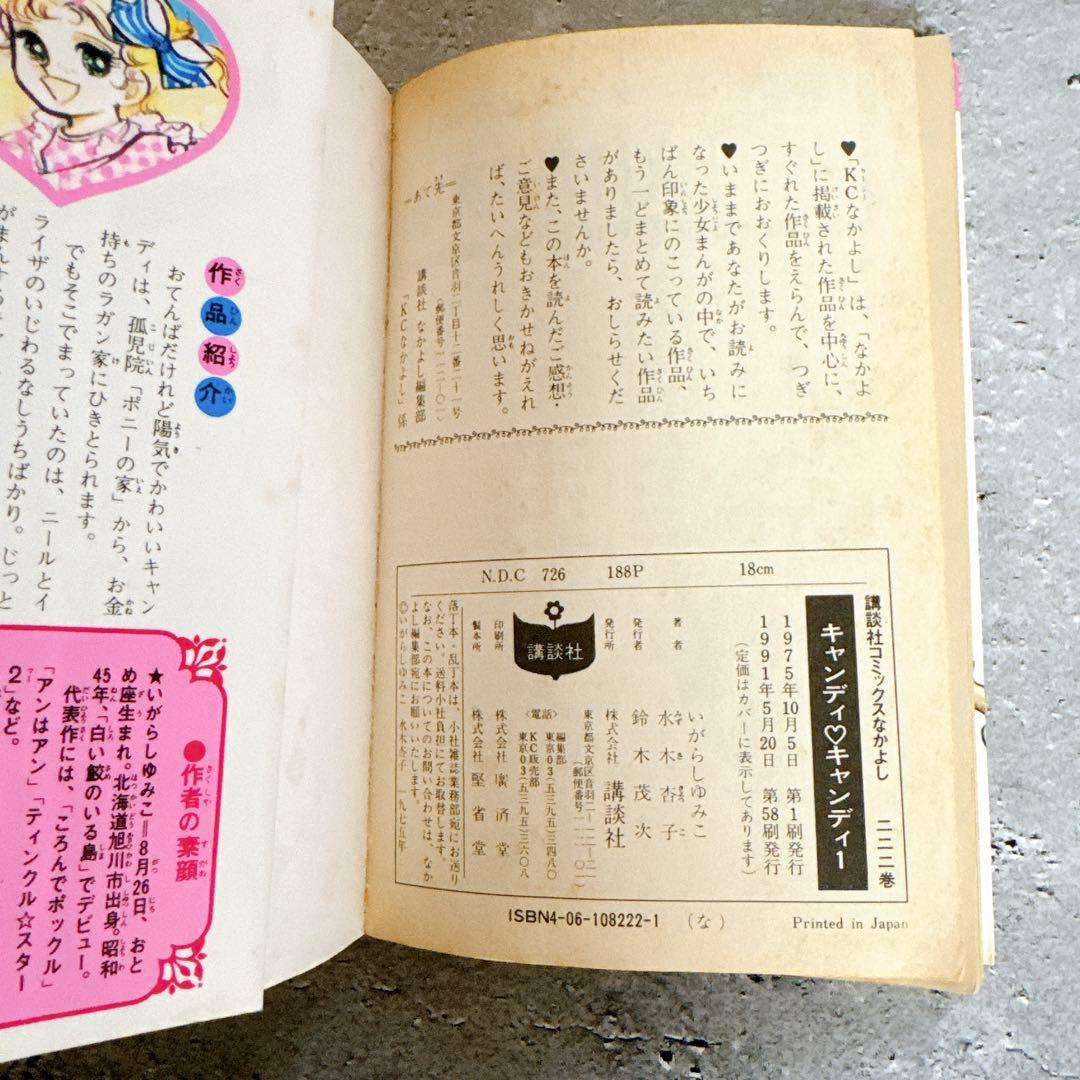 ♥「KCなかよし」は、「なかよ
し」に掲載された作品を中心に、
すぐれた作品をえらんで、つぎ
つぎにおおくりします。
♥いままであなたがお読みに
なった少女まんがの中で、いち
ばん印象にのこっている作品、
もう一どまとめて読みたい作品
がありましたら、おしらせくだ
さいませんか。
♥また、この本を読んだご感想・
ご意見などもおきかせねがえれ
ば、たいへんうれしく思います。
＝あて先＝
東京都文京区音羽二丁目十二番二十一号
（郵便番号一一二-〇一）
講談社 なかよし編集部
「KCなかよし」係
N.D.C 726 188P 18cm
講談社コミックスなかよし 二二二巻
キャンディ♡キャンディ1
1975年10月5日 第1刷発行
1991年5月20日 第58刷発行
（定価はカバーに表示してあります）
著者 いがらしゆみこ
水木杏子
発行者 鈴木茂次
発行所 株式会社 講談社
東京都文京区音羽二-一二-二一
（郵便番号一一二-〇一）
講談社
〈電話〉 編集部 東京03（五三九五）三四八〇
KC販売部 東京03（五三九五）三六〇八
印刷所 株式会社 廣済堂
製本所 株式会社 堅省堂
落丁本・乱丁本は、小社雑誌業務部宛にお送り
ください。送料小社負担にてお取替します。
なお、この本についてのお問い合わせは、なか
よし編集部宛にお願いいたします。
©いがらしゆみこ 水木杏子 一九七五年
ISBN4-06-108222-1 （な） Printed in Japan
作品紹介
おてんばだけれど陽気でかわいいキャン
ディは、孤児院「ポニーの家」から、お金
持ちのラガン家にひきとられます。
でもそこでまっていたのは、ニールとイ
ライザのいじわるなしうちばかり。じっと
●作者の素顔
★いがらしゆみこ＝8月26日、おと
め座生まれ。北海道旭川市出身。昭和
45年、「白い鮫のいる島」でデビュー。
代表作には、「ころんでポックル」
「アンはアン」「ティンクル☆スター
2」など。